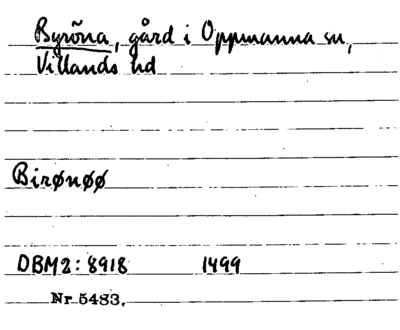 Byröna, gård i Oppmanna sn,
Villands hd
Birønøø
DBM2: 8918 1499
Nr 5483.